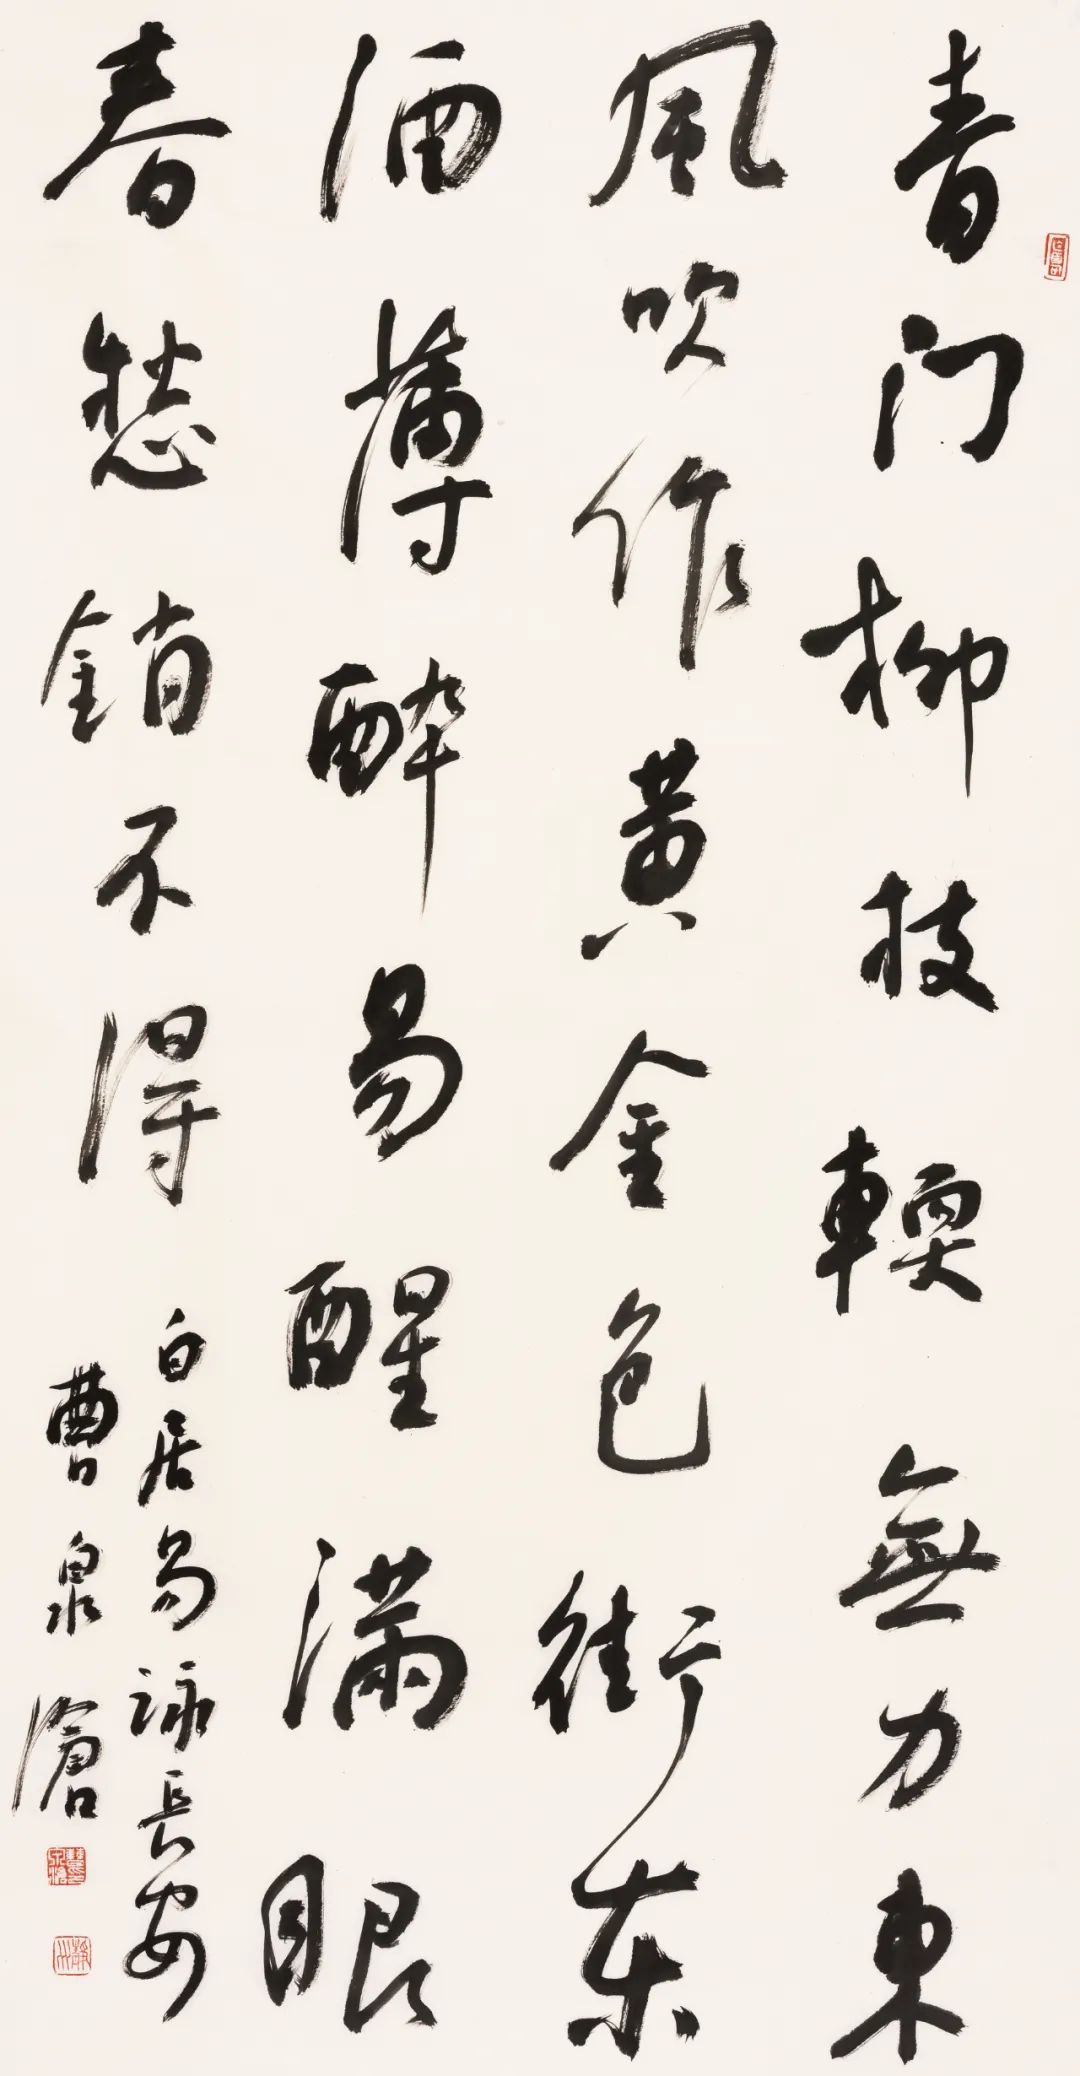 青门柳枝輭無力東
風吹作黄金色街東
酒薄醉易醒滿眼
春愁銷不得
白居易詠長安
曹泉滄